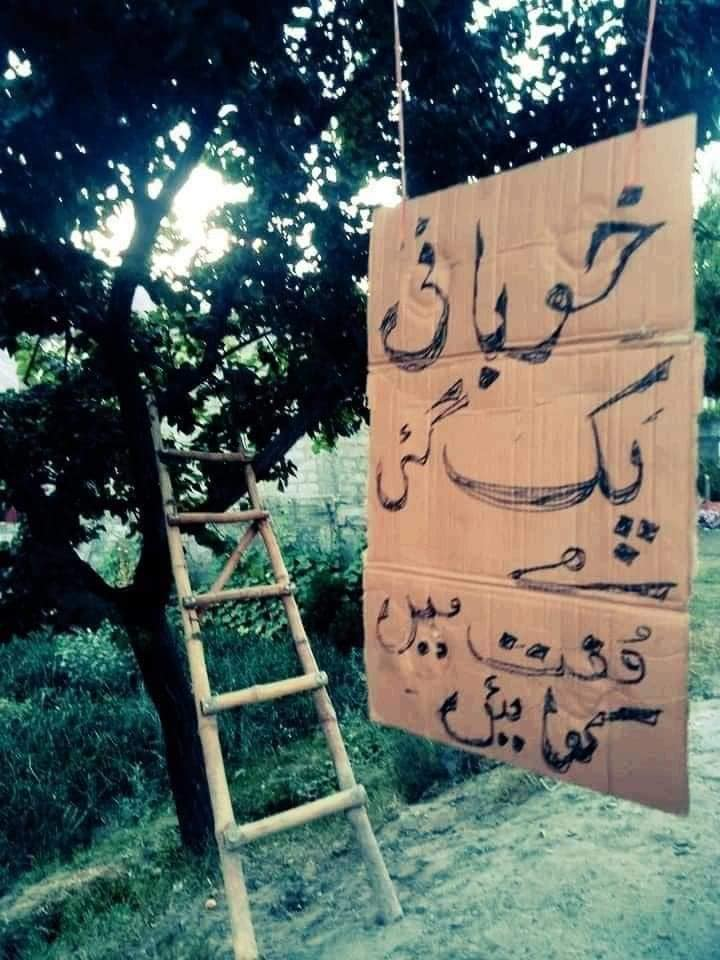 خوبانی
پک گئی
ہے
مُفت میں
کھائیں